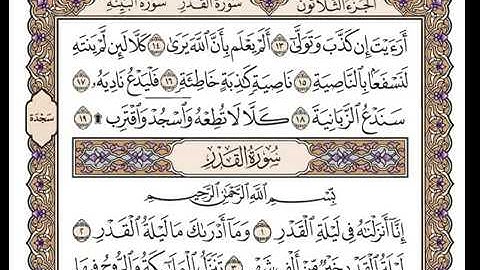 الجزء الثلاثون سورة القدر سورة البينة
أَرَءَيْتَ إِن كَذَّبَ وَتَوَلَّىٰٓ ١٣ أَلَمْ يَعْلَم بِأَنَّ ٱللَّهَ يَرَىٰ ١٤ كَلَّا لَئِن لَّمْ يَنتَهِ
لَنَسْفَعًۢا بِٱلنَّاصِيَةِ ١٥ نَاصِيَةٍ كَٰذِبَةٍ خَاطِئَةٍ ١٦ فَلْيَدْعُ نَادِيَهُۥ ١٧
سَنَدْعُ ٱلزَّبَانِيَةَ ١٨ كَلَّا لَا تُطِعْهُ وَٱسْجُدْ وَٱقْتَرِب ۩ ١٩
سَجْدَة
سُورَةُ القَدْرِ
بِسْمِ ٱللَّهِ ٱلرَّحْمَٰنِ ٱلرَّحِيمِ
إِنَّآ أَنزَلْنَٰهُ فِى لَيْلَةِ ٱلْقَدْرِ ١ وَمَآ أَدْرَىٰكَ مَا لَيْلَةُ ٱلْقَدْرِ ٢
لَيْلَةُ ٱلْقَدْرِ خَيْرٌ مِّنْ أَلْفِ شَهْرٍ ٣ تَنَزَّلُ ٱلْمَلَٰٓئِكَةُ وَٱلرُّوحُ فِيهَا